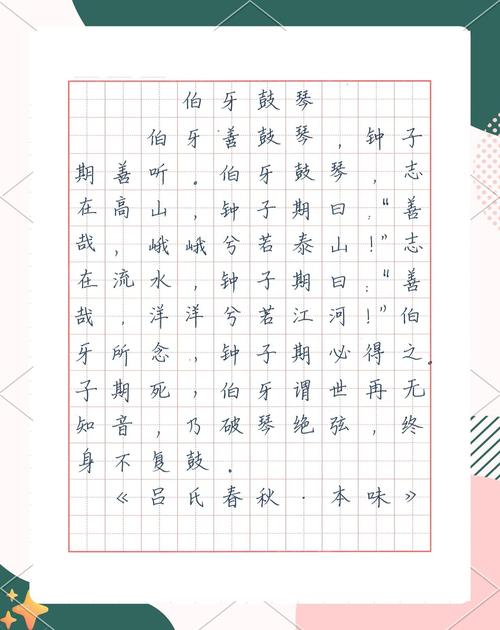 伯牙鼓琴
伯牙善鼓琴，钟子
期善听。伯牙鼓琴，志
在高山，钟子期曰：“善
哉，峨峨兮若泰山！”志
在流水，钟子期曰：“善
哉，洋洋兮若江河！”伯
牙所念，钟子期必得之。
子期死，伯牙谓世再无
知音，乃破琴绝弦，终
身不复鼓。
《吕氏春秋·本味》